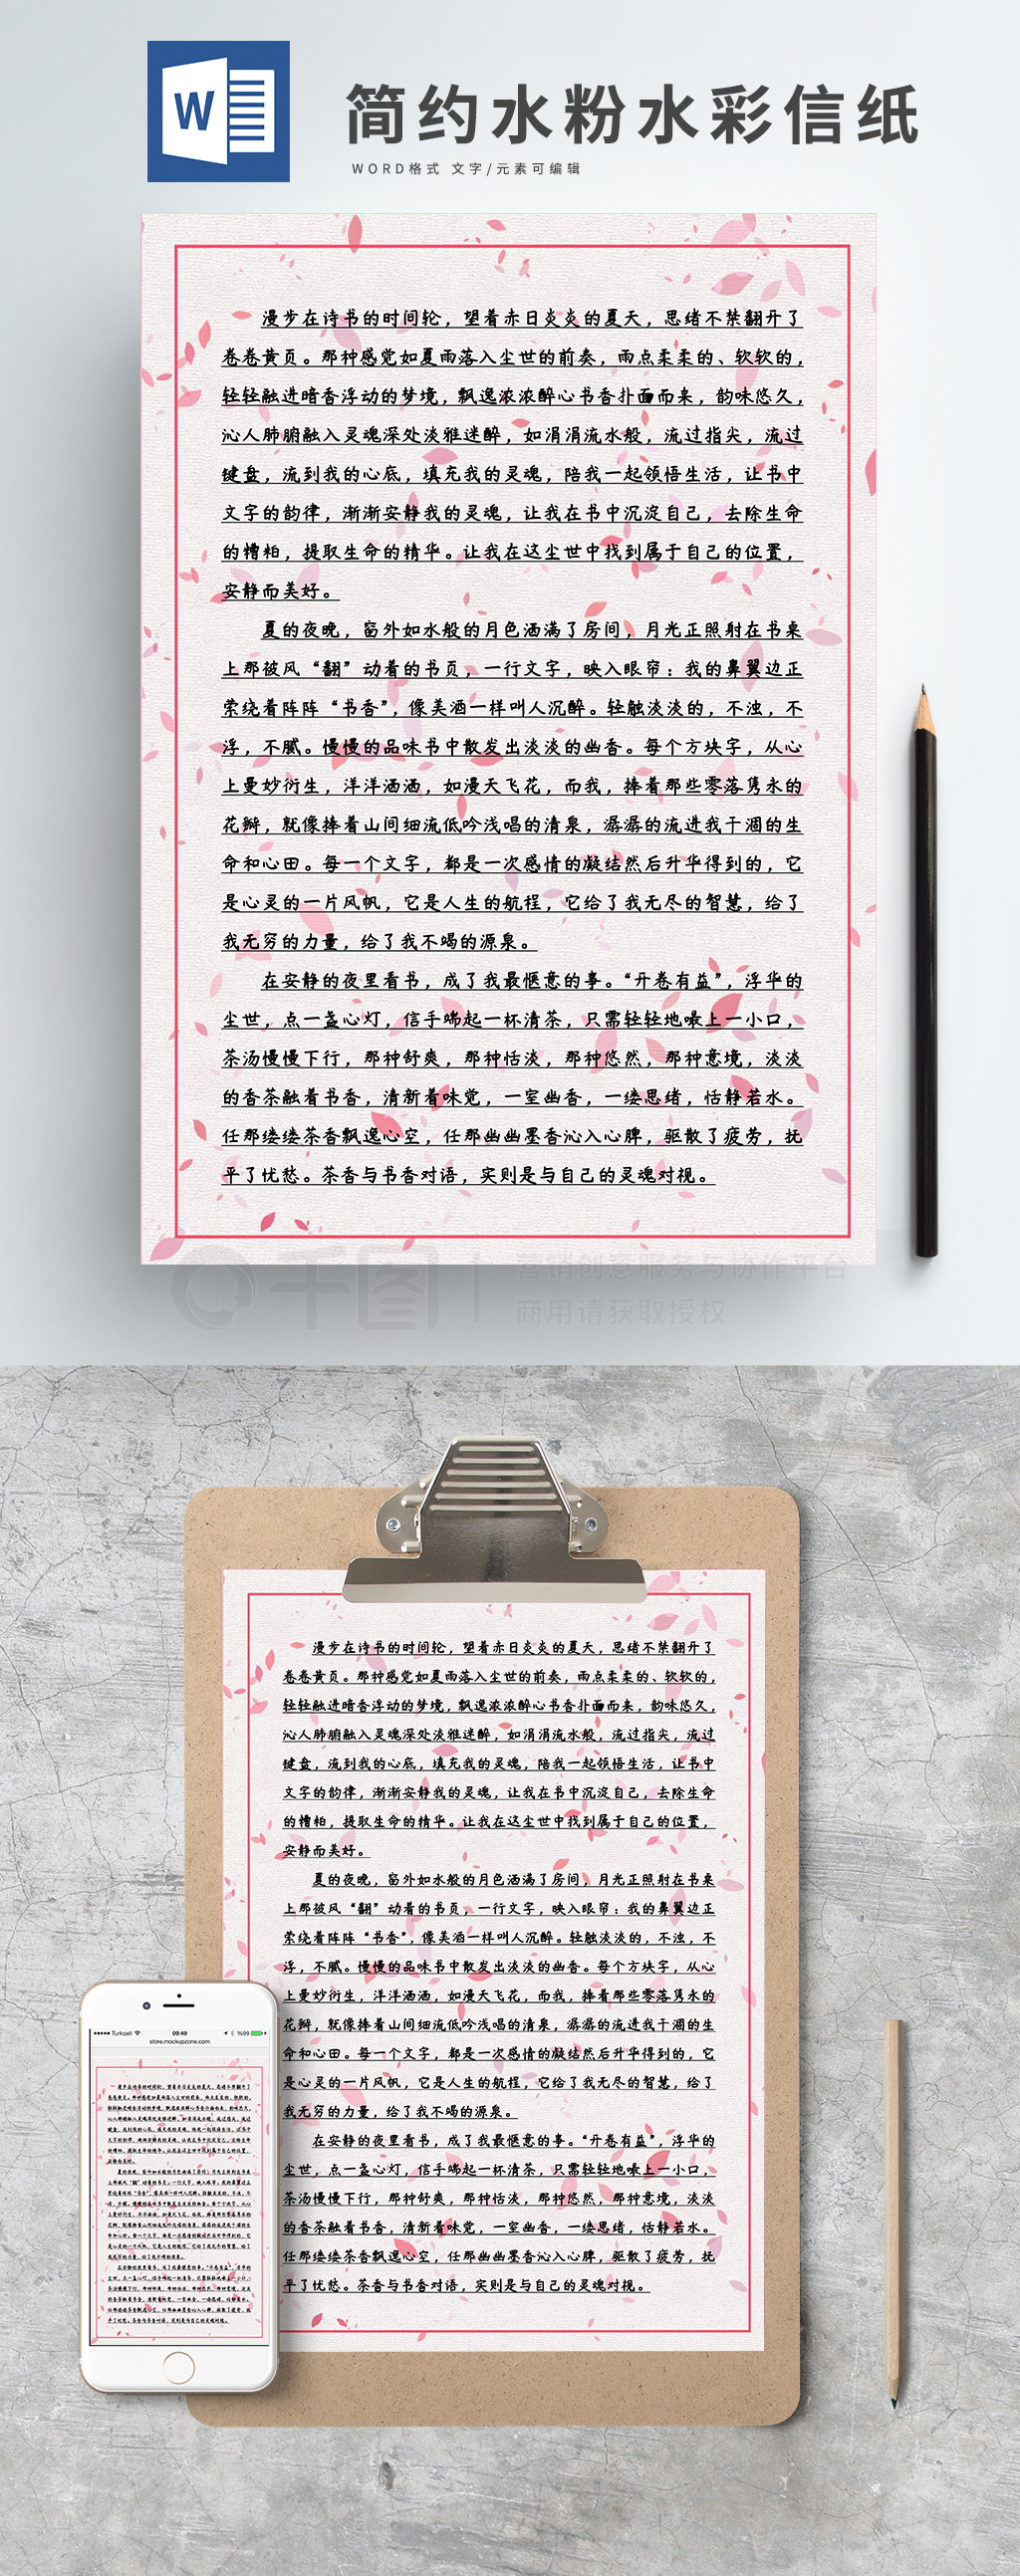 W
简约水粉水彩信纸
WORD格式 文字/元素可编辑
漫步在诗书的时间轮，望着赤日炎炎的夏天，思绪不禁翻开了
卷卷黄页。那种感觉如夏雨落入尘世的前奏，雨点柔柔的、软软的，
轻轻融进暗香浮动的梦境，飘逸浓浓醉心书香扑面而来，韵味悠久，
沁人肺腑融入灵魂深处淡雅迷醉，如涓涓流水般，流过指尖，流过
键盘，流到我的心底，填充我的灵魂，陪我一起领悟生活，让书中
文字的韵律，渐渐安静我的灵魂，让我在书中沉淀自己，去除生命
的糟粕，提取生命的精华。让我在这尘世中找到属于自己的位置，
安静而美好。
夏的夜晚，窗外如水般的月色洒满了房间，月光正照射在书桌
上那被风“翻”动着的书页，一行文字，映入眼帘：我的鼻翼边正
萦绕着阵阵“书香”，像美酒一样叫人沉醉。轻触淡淡的，不浊，不
浮，不腻。慢慢的品味书中散发出淡淡的幽香。每个方块字，从心
上曼妙衍生，洋洋洒洒，如漫天飞花，而我，捧着那些零落隽永的
花瓣，就像捧着山间细流低吟浅唱的清泉，潺潺的流进我干涸的生
命和心田。每一个文字，都是一次感情的凝结然后升华得到的，它
是心灵的一片风帆，它是人生的航程，它给了我无尽的智慧，给了
我无穷的力量，给了我不竭的源泉。
在安静的夜里看书，成了我最惬意的事。“开卷有益”，浮华的
尘世，点一盏心灯，信手端起一杯清茶，只需轻轻地嘬上一小口，
茶汤慢慢下行，那种舒爽，那种恬淡，那种悠然，那种意境，淡淡
的香茶融着书香，清新着味觉，一室幽香，一缕思绪，恬静若水。
任那缕缕茶香飘逸心空，任那幽幽墨香沁入心脾，驱散了疲劳，抚
平了忧愁。茶香与书香对语，实则是与自己的灵魂对视。
千图
营销创意服务与协作平台
商用请获取授权
漫步在诗书的时间轮，望着赤日炎炎的夏天，思绪不禁翻开了
卷卷黄页。那种感觉如夏雨落入尘世的前奏，雨点柔柔的、软软的，
轻轻融进暗香浮动的梦境，飘逸浓浓醉心书香扑面而来，韵味悠久，
沁人肺腑融入灵魂深处淡雅迷醉，如涓涓流水般，流过指尖，流过
键盘，流到我的心底，填充我的灵魂，陪我一起领悟生活，让书中
文字的韵律，渐渐安静我的灵魂，让我在书中沉淀自己，去除生命
的糟粕，提取生命的精华。让我在这尘世中找到属于自己的位置，
安静而美好。
夏的夜晚，窗外如水般的月色洒满了房间，月光正照射在书桌
上那被风“翻”动着的书页，一行文字，映入眼帘：我的鼻翼边正
萦绕着阵阵“书香”，像美酒一样叫人沉醉。轻触淡淡的，不浊，不
浮，不腻。慢慢的品味书中散发出淡淡的幽香。每个方块字，从心
上曼妙衍生，洋洋洒洒，如漫天飞花，而我，捧着那些零落隽永的
花瓣，就像捧着山间细流低吟浅唱的清泉，潺潺的流进我干涸的生
命和心田。每一个文字，都是一次感情的凝结然后升华得到的，它
是心灵的一片风帆，它是人生的航程，它给了我无尽的智慧，给了
我无穷的力量，给了我不竭的源泉。
在安静的夜里看书，成了我最惬意的事。“开卷有益”，浮华的
尘世，点一盏心灯，信手端起一杯清茶，只需轻轻地嘬上一小口，
茶汤慢慢下行，那种舒爽，那种恬淡，那种悠然，那种意境，淡淡
的香茶融着书香，清新着味觉，一室幽香，一缕思绪，恬静若水。
任那缕缕茶香飘逸心空，任那幽幽墨香沁入心脾，驱散了疲劳，抚
平了忧愁。茶香与书香对语，实则是与自己的灵魂对视。
Turkcell 09:49 %99
store.mockupzone.com